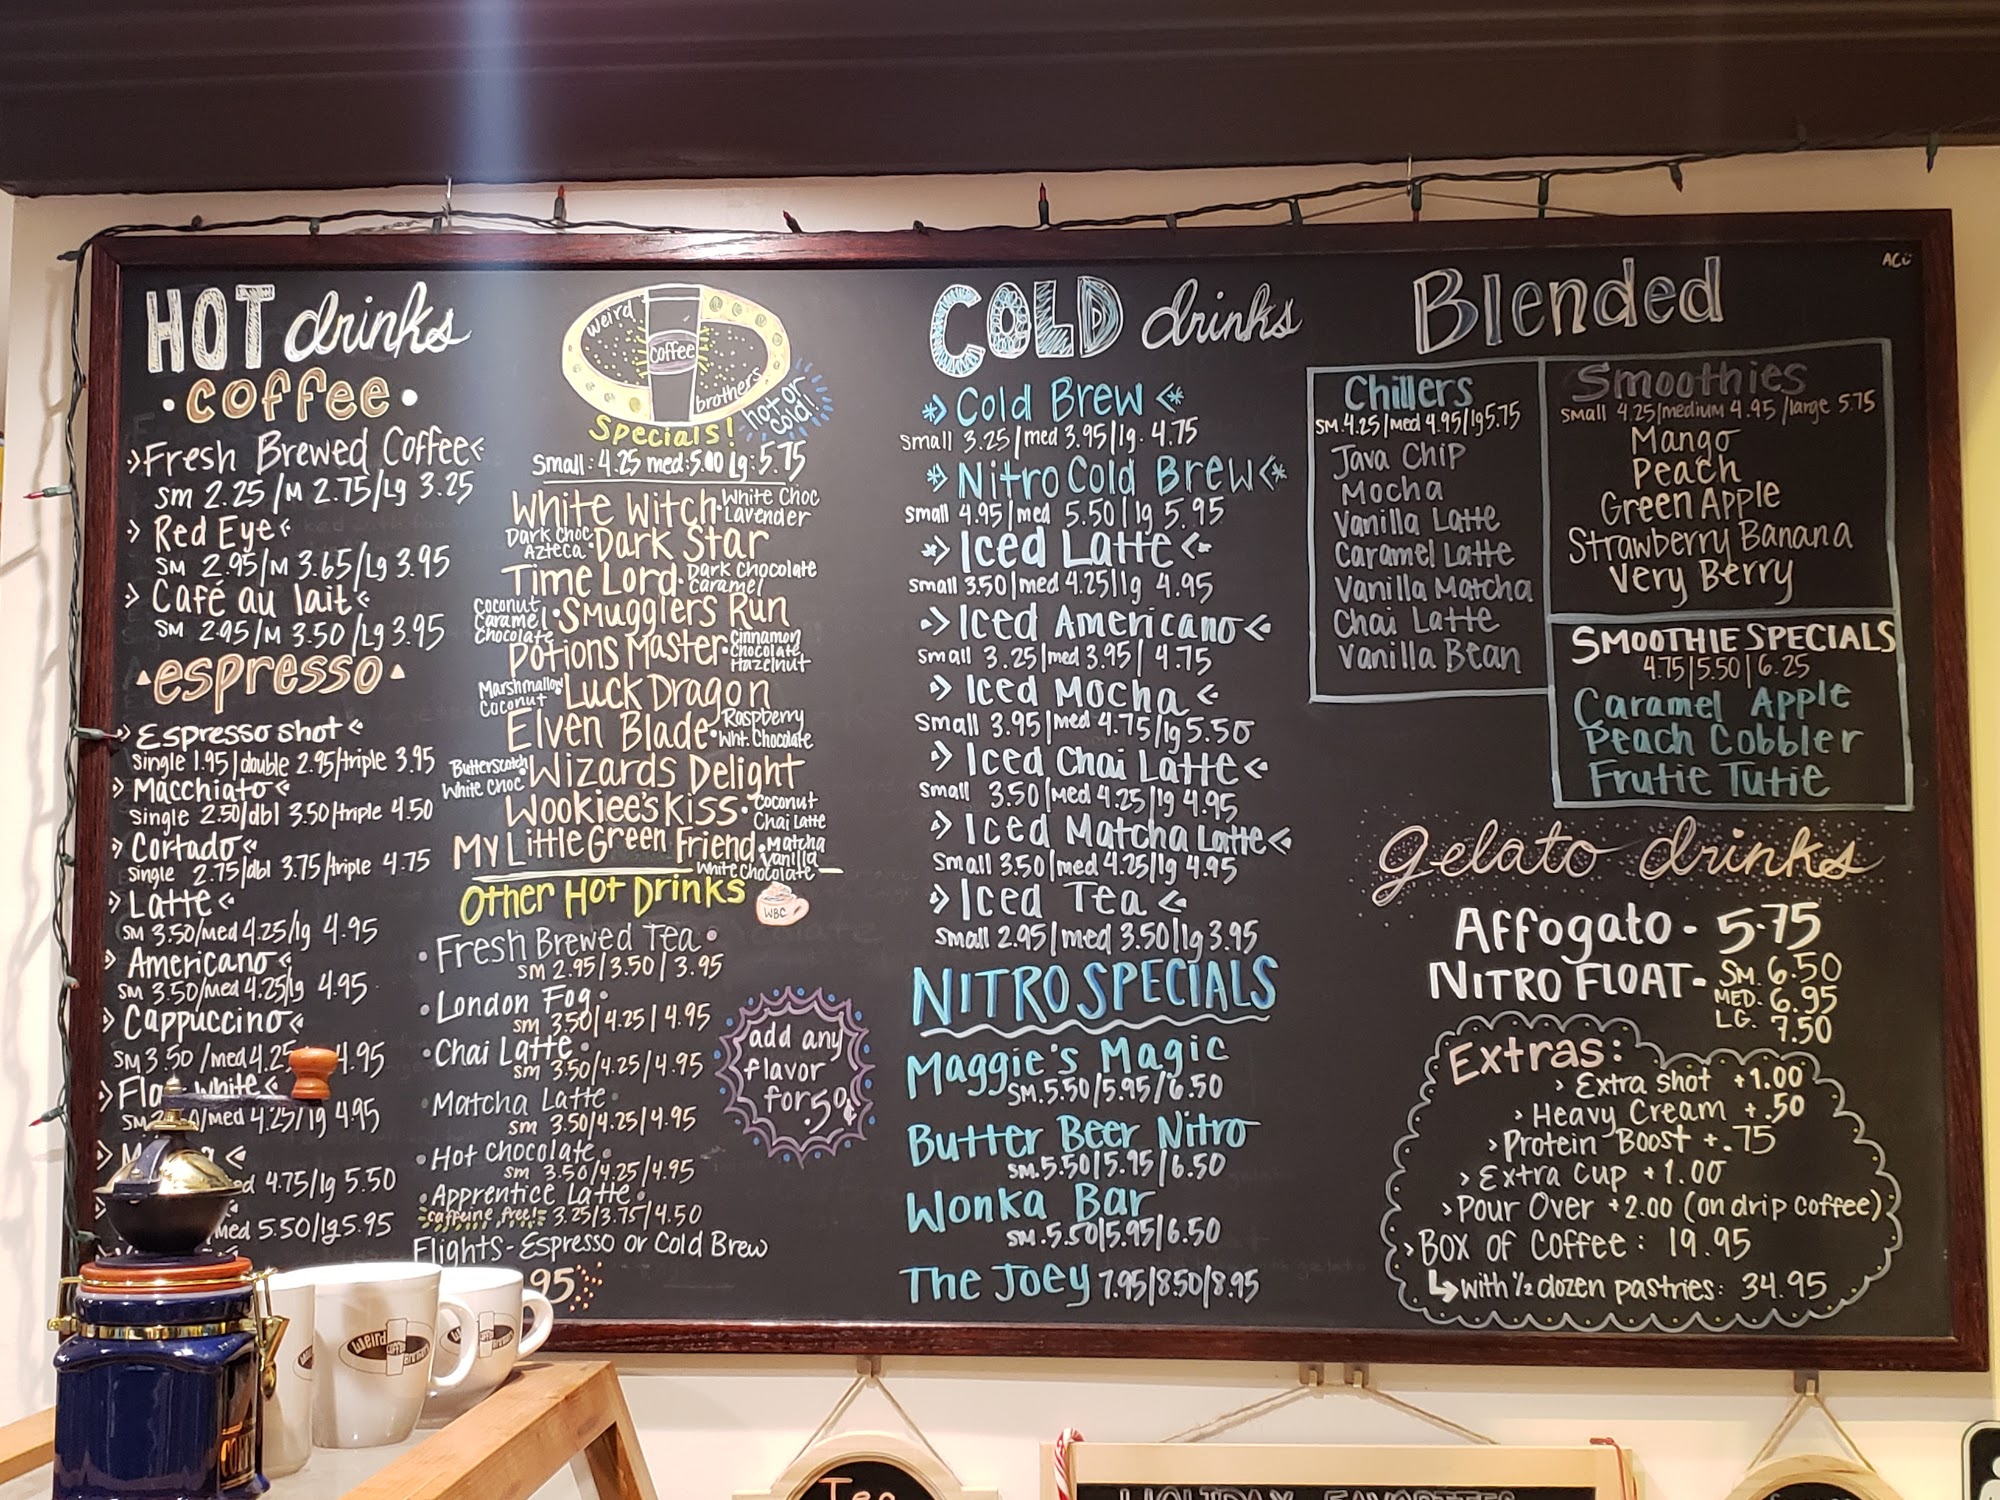 HOT drinks
• coffee •
Fresh Brewed Coffee
sm 2.25/M 2.75/Lg 3.25
Red Eye
SM 2.95/M 3.65/Lg 3.95
Café au lait
SM 2.95/M 3.50/Lg 3.95
espresso
Espresso shot
single 1.95/double 2.95/triple 3.95
Macchiato
single 2.50/dbl 3.50/triple 4.50
Cortado
single 2.75/dbl 3.75/triple 4.75
Latte
SM 3.50/med 4.25/lg 4.95
Americano
SM 3.50/med 4.25/lg 4.95
Cappuccino
SM 3.50/med 4.25 4.95
White
/med 4.25/lg 4.95
4.75/lg 5.50
med 5.50/lg 5.95
weird
coffee
brothers
hot or
cold!
Specials!
Small: 4.25 med: 5.00 Lg: 5.75
White Witch • White Choc
Lavender
Dark Choc
Azteca • Dark Star
Time Lord • Dark Chocolate
Caramel
Coconut
Caramel • Smugglers Run
Chocolate
Potions Master • Cinnamon
Chocolate
Hazelnut
Marshmallow
Coconut Luck Dragon
Elven Blade • Raspberry
Wht. Chocolate
Butterscotch
White Choc Wizards Delight
Wookiee's Kiss • Coconut
Chai Latte
My Little Green Friend • Matcha
Vanilla
White Chocolate
Other Hot Drinks
WBC
• Fresh Brewed Tea •
sm 2.95/3.50/3.95
• London Fog •
sm 3.50/4.25/4.95
• Chai Latte •
sm 3.50/4.25/4.95
• Matcha Latte •
sm 3.50/4.25/4.95
• Hot Chocolate •
sm 3.50/4.25/4.95
• Apprentice Latte •
caffeine free! 3.25/3.75/4.50
Flights - Espresso or Cold Brew
95
add any
flavor
for .50¢
COLD drinks
Cold Brew
small 3.25/med 3.95/lg. 4.75
Nitro Cold Brew
small 4.95/med 5.50/lg 5.95
Iced Latte
small 3.50/med 4.25/lg 4.95
Iced Americano
small 3.25/med 3.95/ 4.75
Iced Mocha
small 3.95/med 4.75/lg 5.50
Iced Chai Latte
small 3.50/med 4.25/lg 4.95
Iced Matcha Latte
small 3.50/med 4.25/lg 4.95
Iced Tea
small 2.95/med 3.50/lg 3.95
NITRO SPECIALS
Maggie's Magic
SM. 5.50/5.95/6.50
Butter Beer Nitro
SM. 5.50/5.95/6.50
Wonka Bar
SM. 5.50/5.95/6.50
The Joey 7.95/8.50/8.95
Blended
Chillers
SM 4.25/med 4.95/lg 5.75
Java Chip
Mocha
Vanilla Latte
Caramel Latte
Vanilla Matcha
Chai Latte
Vanilla Bean
Smoothies
small 4.25/medium 4.95/large 5.75
Mango
Peach
Green Apple
Strawberry Banana
Very Berry
SMOOTHIE SPECIALS
4.75/5.50/6.25
Caramel Apple
Peach Cobbler
Frutie Tutie
gelato drinks
Affogato - 5.75
NITRO FLOAT - SM. 6.50
MED. 6.95
LG. 7.50
Extras:
Extra shot +1.00
Heavy Cream +.50
Protein Boost +.75
Extra cup +1.00
Pour Over +2.00 (on drip coffee)
Box of Coffee: 19.95
with 1/2 dozen pastries: 34.95
Weird
Coffee
Brothers
Tea
HOLIDAY FAVORITES